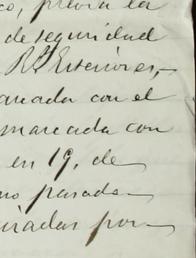 co, previa la
de seguridad
Rs Exteriores,—
arcada con el
marcada con
en 19, de
mo pasado—
uradas por—